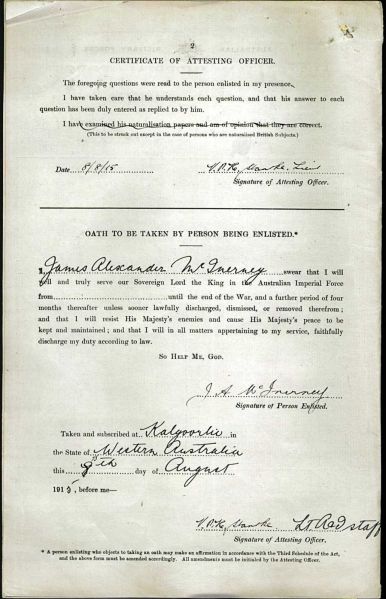 2
CERTIFICATE OF ATTESTING OFFICER.
The foregoing questions were read to the person enlisted in my presence.
I have taken care that he understands each question, and that his answer to each
question has been duly entered as replied to by him.
I have examined his naturalisation papers and am of opinion that they are correct.
(This to be struck out except in the case of persons who are naturalised British Subjects.)
Date 8/8/15
Signature of Attesting Officer.
OATH TO BE TAKEN BY PERSON BEING ENLISTED.*
I, James Alexander McInerney swear that I will
well and truly serve our Sovereign Lord the King in the Australian Imperial Force
from until the end of the War, and a further period of four
months thereafter unless sooner lawfully discharged, dismissed, or removed therefrom;
and that I will resist His Majesty's enemies and cause His Majesty's peace to be
kept and maintained; and that I will in all matters appertaining to my service, faithfully
discharge my duty according to law.
SO HELP ME, GOD.
J A McInerney
Signature of Person Enlisted.
Taken and subscribed at Kalgoorlie in
the State of Western Australia
this 8th day of August
1915, before me—
Lt A&I staff
Signature of Attesting Officer.
* A person enlisting who objects to taking an oath may make an affirmation in accordance with the Third Schedule of the Act,
and the above form must be amended accordingly. All amendments must be initialed by the Attesting Officer.